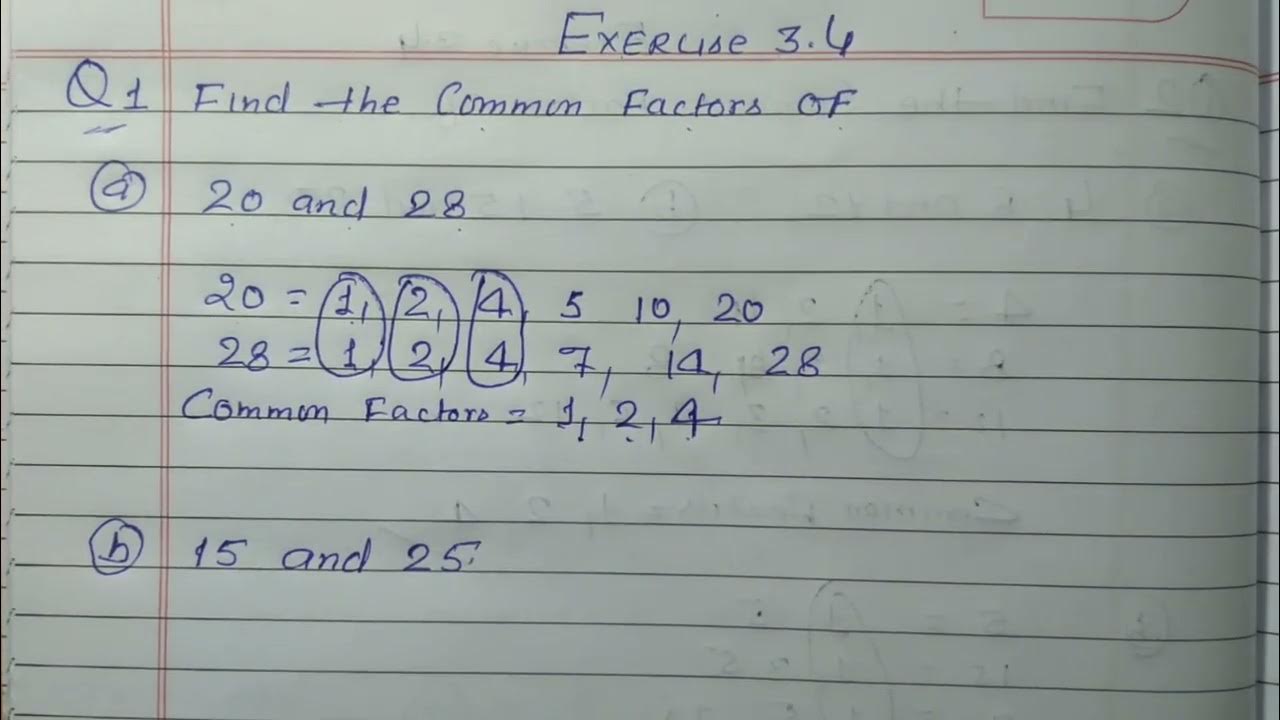 Exercise 3.4
Q1 Find the Common Factors of
(a) 20 and 28
20 = 1, 2, 4, 5 10, 20
28 = 1, 2, 4, 7, 14, 28
Common Factors = 1, 2, 4
(b) 15 and 25